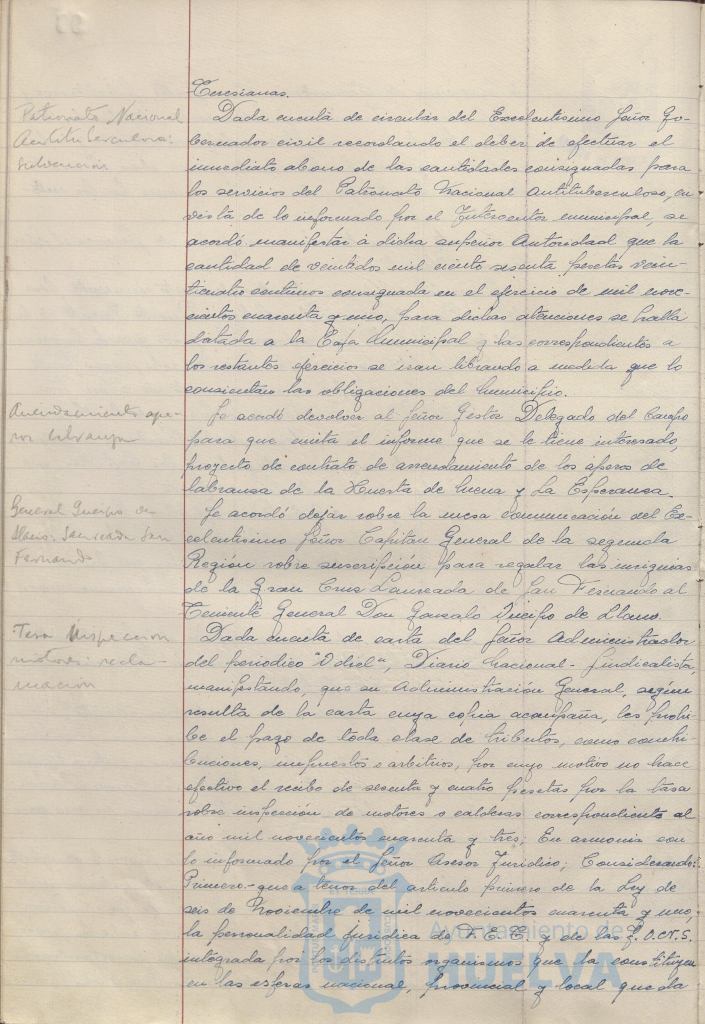 Teresianas.
Patronato Nacional
Antituberculoso:
Subvención
Dada cuenta de circular del Excelentísimo Señor Go-
bernador civil recordando el deber de efectuar el
inmediato abono de las cantidades consignadas para
los servicios del Patronato Nacional Antituberculoso, en
vista de lo informado por el Interventor municipal, se
acordó manifestar á dicha superior Autoridad que la
cantidad de veintidos mil ciento sesenta pesetas vein-
ticuatro céntimos consignada en el ejercicio de mil nove-
cientos cuarenta y uno, para dichas atenciones se halla
datada a la Caja Municipal y las correspondientes a
los restantes ejercicios se iran librando a medida que lo
consientan las obligaciones del Municipio.
Arrendamiento ape-
ros labranza
Se acordó devolver al Señor Gestor Delegado del Campo
para que emita el informe que se le tiene interesado,
proyecto de contrato de arrendamiento de los aperos de
labranza de la Huerta de Mena y La Esperanza.
General Queipo de
Llano: Laureada San
Fernando
Se acordó dejar sobre la mesa comunicación del Ex-
celentísimo Señor Capitan General de la segunda
Región sobre suscripción para regalar las insignias
de la Gran Cruz Laureada de San Fernando al
Teniente General Don Gonzalo Queipo de Llano.
Tasa Inspección
motores: recla-
mación
Dada cuenta de carta del Señor Administrador
del periodico "Odiel", Diario Nacional-Sindicalista,
manifestando, que su Administración General, según
resulta de la carta cuya copia acompaña, les prohi-
be el pago de toda clase de tributos, como contri-
buciones, impuestos o arbitrios, por cuyo motivo no hace
efectivo el recibo de sesenta y cuatro pesetas por la tasa
sobre inspección de motores o calderas correspondiente al
año mil novecientos cuarenta y tres; En armonia con
lo informado por el Señor Asesor Juridico; Considerando:
Primero.- que a tenor del articulo primero de la Ley de
seis de Noviembre de mil novecientos cuarenta y uno,
la personalidad juridica de F.E.T. y de las J.O.N.S.
integrada por los distintos organismos que la constituyen
en las esferas nacional, provincial y local queda
Ayuntamiento de
HUELVA